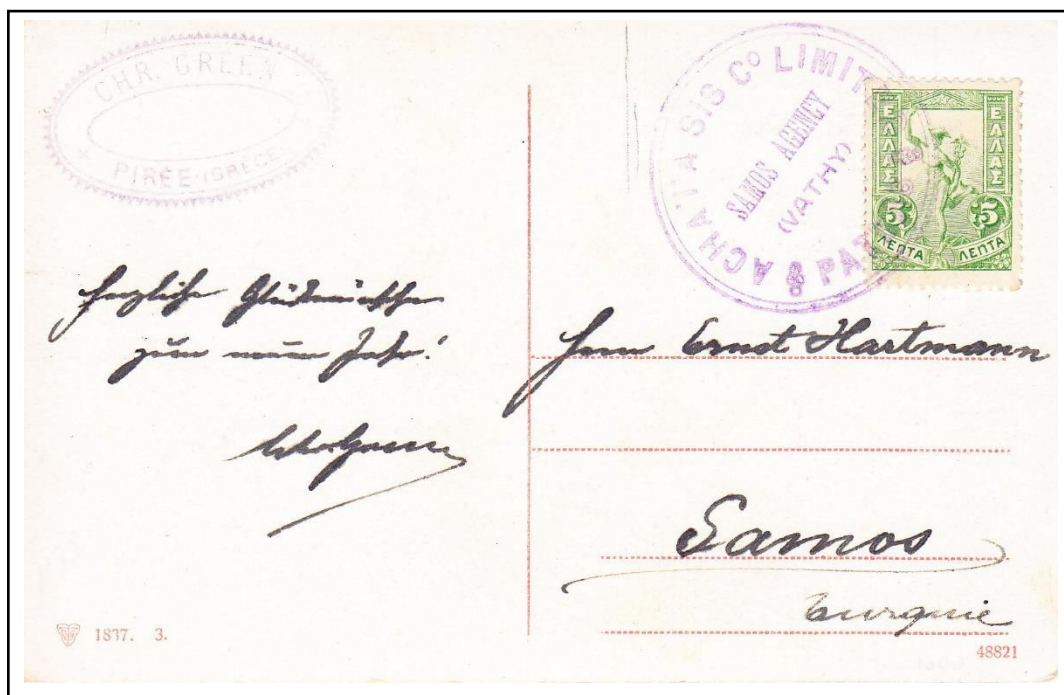 CHR. GREEN
PIRÉE (GRÈCE)
ACHAIA S/S Co LIMIT
SAMOS AGENCY
(VATHY)
PAT
ΕΛΛΑΣ
ΕΛΛΑΣ
5 5
ΛΕΠΤΑ ΛΕΠΤΑ
Herzliche Glückwünsche
zum neuen Jahr!
Chr Green
Herrn Ernst Hartmann
Samos
Turquie
1837. 3.
48821